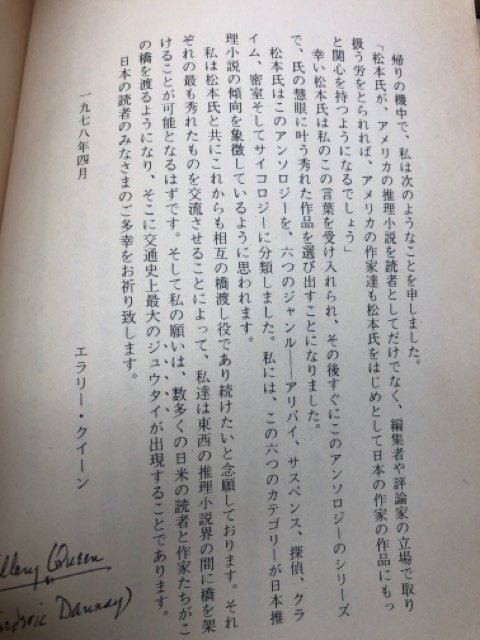 帰りの機中で、私は次のようなことを申しました。
「松本氏が、アメリカの推理小説を読者としてだけでなく、編集者や評論家の立場で取り
扱う労をとられれば、アメリカの作家達も松本氏をはじめとして日本の作家の作品にもっ
と関心を持つようになるでしょう」
幸い松本氏は私のこの言葉を受け入れられ、その後すぐにこのアンソロジーのシリーズ
で、氏の慧眼に叶う秀れた作品を選び出すことになりました。
松本氏はこのアンソロジーを、六つのジャンル——アリバイ、サスペンス、探偵、クラ
イム、密室そしてサイコロジーに分類しました。私には、この六つのカテゴリーが日本推
理小説の傾向を象徴しているように思われます。
私は松本氏と共にこれからも相互の橋渡し役であり続けたいと念願しております。それ
ぞれの最も秀れたものを交流させることによって、私達は東西の推理小説界の間に橋を架
けることが可能となるはずです。そして私の願いは、数多くの日米の読者と作家たちがこ
の橋を渡るようになり、そこに交通史上最大のジュウタイが出現することであります。
日本の読者のみなさまのご多幸をお祈り致します。
一九七八年四月
エラリー・クイーン
Ellery Queen
(Frederic Dannay)